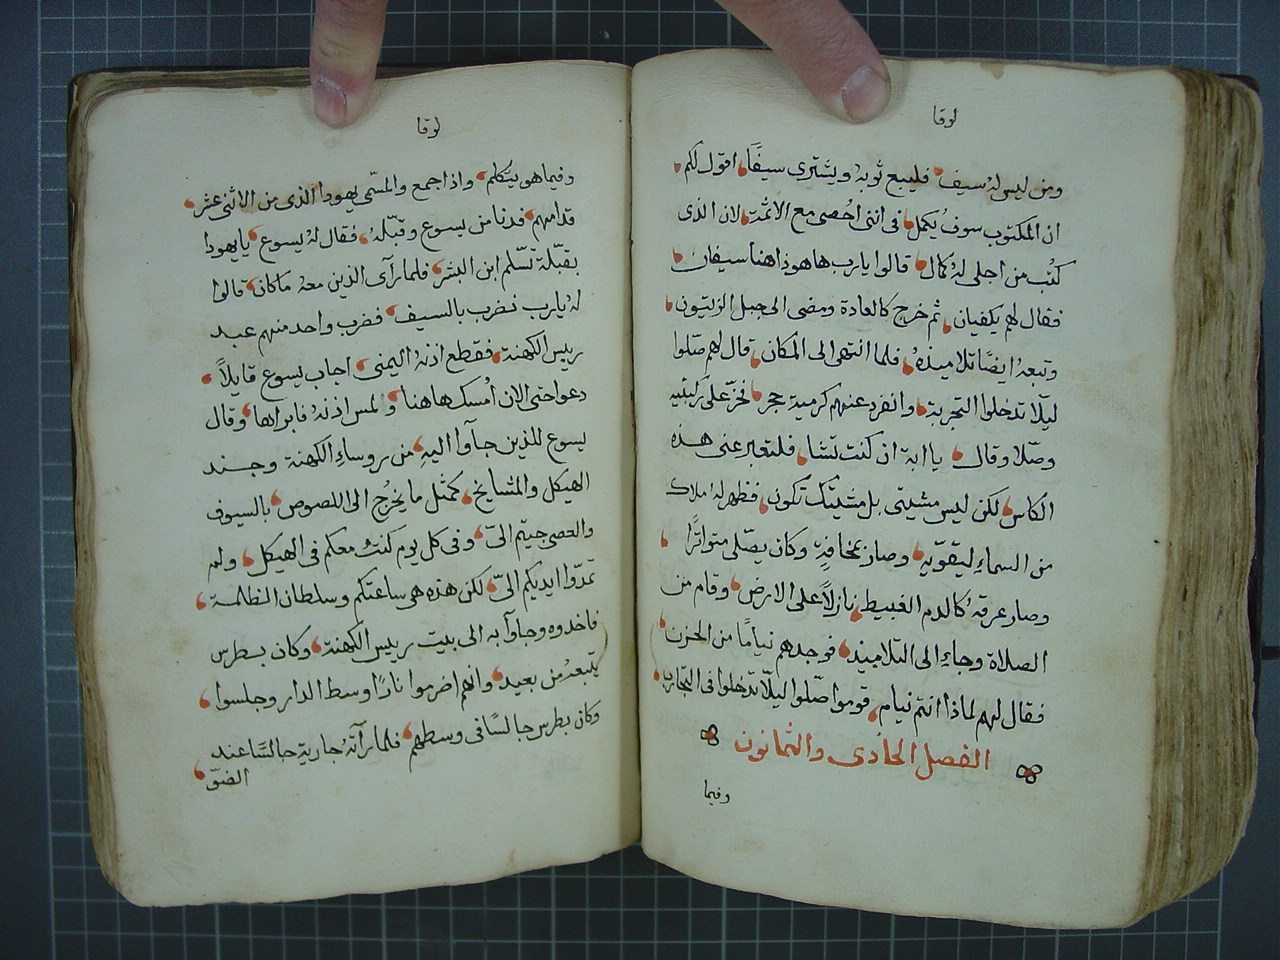 لوقا
ومن ليس له سيف فليبيع ثوبه ويشترى سيفًا اقول لكم
ان المكتوب سوف يكمل فى اننى احُصى مع الاثمة لان الذى
كتُب من اجلى له كمال قالوا يارب هاهوذا هنا سيفان
فقال لهم يكفيان ثم خرج كالعادة ومضى الى جبل الزيتون
وتبعهُ ايضًا تلاميذهُ فلما انتهى الى المكان قال لهم صلّوا
ليلّا تدخلوا التجربة وانفرد عنهم كرمية حجر فخرّ على ركبتيه
وصلّا وقال يا ابة ان كنت تشا فلتعبر عنى هذه
الكاس لكن ليس مشيتى بل مشيتك تكون فظهر له ملاك
من السماء ليقوّيه وصار بمخافةٍ وكان يصلّى متواترًا
وصار عرقهُ كالدم الغبيط نازلاً على الارض وقام من
الصلاة وجاء الى التلاميذ فوجدهم نيامًا من الحزن
فقال لهم لماذا انتم نيام قوموا صلّوا ليلّا تدخلوا فى التجارب
الفصل الحادى والثمانون
وفيما
لوقا
وفيما هو يتكلم واذا جمع والمسّمى يهودا الذى من الاثنى عشر
قدامهم فدنا من يسوع وقبّلهُ فقال لهُ يسوع يا يهودا
بقبّلة تسّلم ابن البشر فلما رآى الذين معهُ ما كان قالوا
لهُ يارب نضرب بالسيف فضرب واحد منهم عبد
رييس الكهنة فقطع اذنهُ اليمنى اجاب يسوع قايلاً
دعوا حتى الان اُمسك هاهنا ولمس اذنهُ فابراها وقال
يسوع للذين جآوا اليهِ من روساءِ الكهنة وجند
الهيكل والمشايخ كمثل ما يخرُج الى اللصوص بالسيوف
والعصى جيتم الىّ وفى كل يوم كنتُ معكم فى الهيكل ولم
تمدّوا ايديكم الىّ لكن هذه هى ساعتكم وسلطان الظلمة
فاخذوه وجاوآ به الى بيت رييس الكهنة وكان بطرس
يتبعهُ من بعيد وانهم اضرموا نارًا وسط الدار وجلسوا
وكان بطرس جالسًا فى وسطهم فلما رآتهُ جارية جالسًا عند
الضوّ